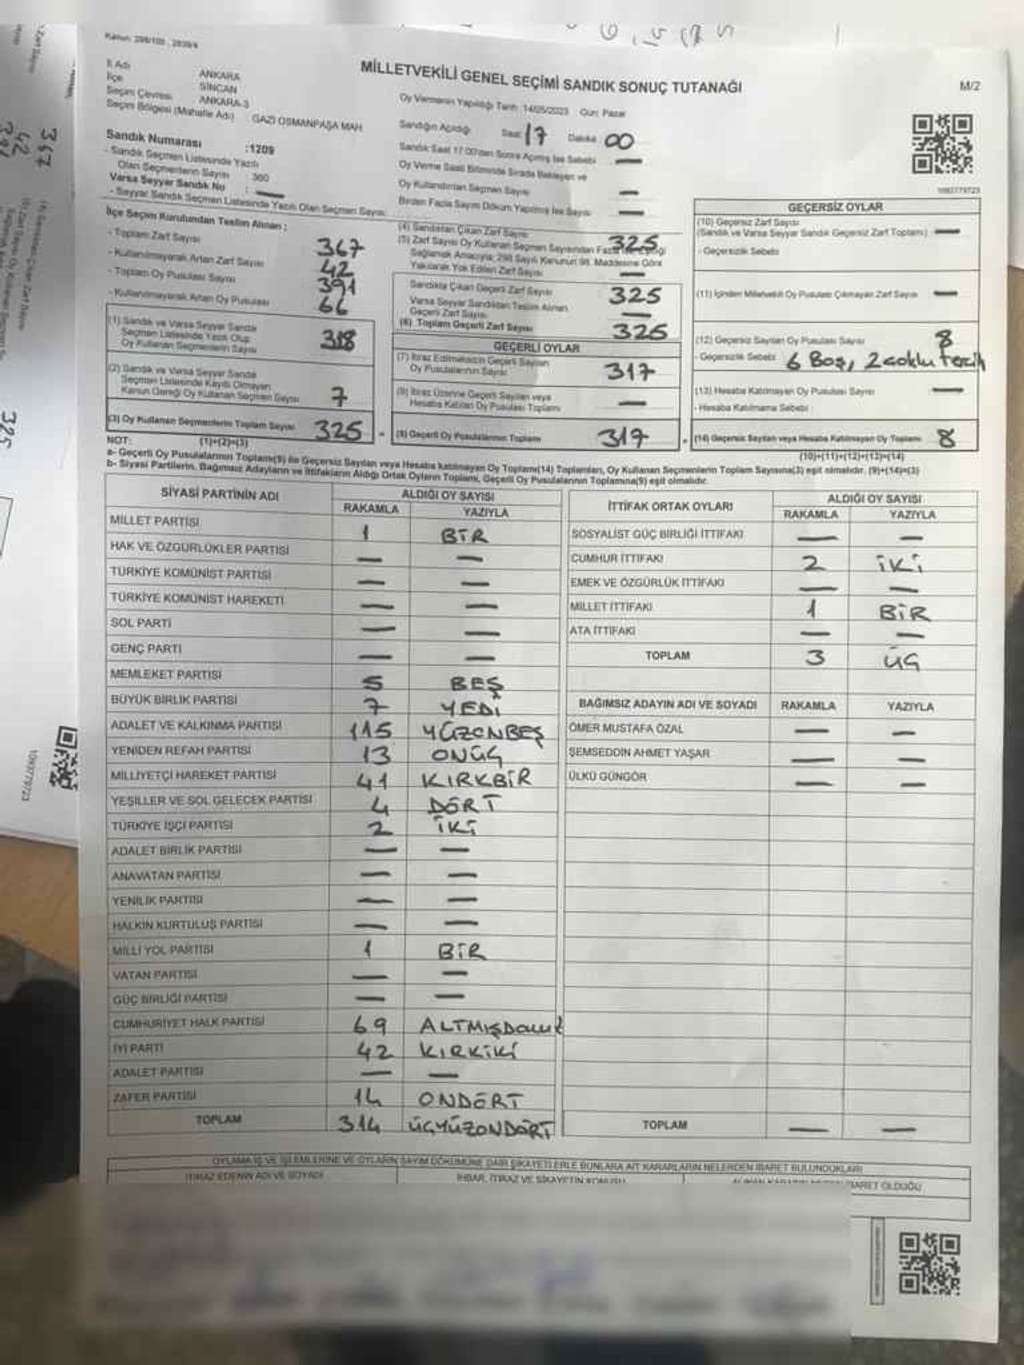 Kanun: 298/105, 2839/4
MİLLETVEKİLİ GENEL SEÇİMİ SANDIK SONUÇ TUTANAĞI
M/2
İl Adı ANKARA
İlçe SİNCAN
Seçim Çevresi ANKARA-3
Seçim Bölgesi (Mahalle Adı) GAZİ OSMANPAŞA MAH
Sandık Numarası :1209
- Sandık Seçmen Listesinde Yazılı
Olan Seçmenlerin Sayısı 360
Varsa Seyyar Sandık No : —
- Seyyar Sandık Seçmen Listesinde Yazılı Olan Seçmen Sayısı
Oy Vermenin Yapıldığı Tarih :14/05/2023 Gün: Pazar
Sandığın Açıldığı Saat 17 Dakika 00
Sandık Saat 17:00'dan Sonra Açılmış İse Sebebi —
Oy Verme Saati Bitiminde Sırada Bekleyen ve
Oy Kullandırılan Seçmen Sayısı —
Birden Fazla Sayım Döküm Yapılmış İse Sayısı —
1093779723
İlçe Seçim Kurulundan Teslim Alınan ;
- Toplam Zarf Sayısı 367
- Kullanılmayarak Artan Zarf Sayısı 42
- Toplam Oy Pusulası Sayısı 391
- Kullanılmayarak Artan Oy Pusulası 66
(1) Sandık ve Varsa Seyyar Sandık
Seçmen Listesinde Yazılı Olup
Oy Kullanan Seçmenlerin Sayısı 318
(2) Sandık ve Varsa Seyyar Sandık
Seçmen Listesinde Kaydı Olmayan
Kanun Gereği Oy Kullanan Seçmen Sayısı 7
(3) Oy Kullanan Seçmenlerin Toplam Sayısı 325
(1)+(2)=(3)
(4) Sandıktan Çıkan Zarf Sayısı 325
(5) Zarf Sayısı Oy Kullanan Seçmen Sayısından Fazla ise Eşitliği
Sağlamak Amacıyla; 298 Sayılı Kanunun 98. Maddesine Göre
Yakılarak Yok Edilen Zarf Sayısı —
Sandıkta Çıkan Geçerli Zarf Sayısı 325
Varsa Seyyar Sandıktan Teslim Alınan
Geçerli Zarf Sayısı —
(6) Toplam Geçerli Zarf Sayısı 325
GEÇERLİ OYLAR
(7) İtiraz Edilmeksizin Geçerli Sayılan
Oy Pusulalarının Sayısı 317
(8) İtiraz Üzerine Geçerli Sayılan veya
Hesaba Katılan Oy Pusulası Toplamı —
(9) Geçerli Oy Pusulalarının Toplamı 317
GEÇERSİZ OYLAR
(10) Geçersiz Zarf Sayısı
(Sandık ve Varsa Seyyar Sandık Geçersiz Zarf Toplamı) —
- Geçersizlik Sebebi
(11) İçinden Milletvekili Oy Pusulası Çıkmayan Zarf Sayısı —
(12) Geçersiz Sayılan Oy Pusulası Sayısı 8
- Geçersizlik Sebebi 6 Boş, 2 çoklu tercih
(13) Hesaba Katılmayan Oy Pusulası Sayısı —
- Hesaba Katılmama Sebebi
(14) Geçersiz Sayılan veya Hesaba Katılmayan Oy Toplamı 8
(10)+(11)+(12)+(13)=(14)
NOT:
a- Geçerli Oy Pusulalarının Toplamı(9) ile Geçersiz Sayılan veya Hesaba katılmayan Oy Toplamı(14) Toplamları, Oy Kullanan Seçmenlerin Toplam Sayısına(3) eşit olmalıdır. (9)+(14)=(3)
b- Siyasi Partilerin, Bağımsız Adayların ve İttifakların Aldığı Ortak Oyların Toplamı, Geçerli Oy Pusulalarının Toplamına(9) eşit olmalıdır.
SİYASİ PARTİNİN ADI ALDIĞI OY SAYISI
RAKAMLA YAZIYLA
MİLLET PARTİSİ 1 BİR
HAK VE ÖZGÜRLÜKLER PARTİSİ — —
TÜRKİYE KOMÜNİST PARTİSİ — —
TÜRKİYE KOMÜNİST HAREKETİ — —
SOL PARTİ — —
GENÇ PARTİ — —
MEMLEKET PARTİSİ 5 BEŞ
BÜYÜK BİRLİK PARTİSİ 7 YEDİ
ADALET VE KALKINMA PARTİSİ 115 YÜZONBEŞ
YENİDEN REFAH PARTİSİ 13 ONÜÇ
MİLLİYETÇİ HAREKET PARTİSİ 41 KIRKBİR
YEŞİLLER VE SOL GELECEK PARTİSİ 4 DÖRT
TÜRKİYE İŞÇİ PARTİSİ 2 İKİ
ADALET BİRLİK PARTİSİ — —
ANAVATAN PARTİSİ — —
YENİLİK PARTİSİ — —
HALKIN KURTULUŞ PARTİSİ — —
MİLLİ YOL PARTİSİ 1 BİR
VATAN PARTİSİ — —
GÜÇ BİRLİĞİ PARTİSİ — —
CUMHURİYET HALK PARTİSİ 69 ALTMIŞDOKUZ
İYİ PARTİ 42 KIRKİKİ
ADALET PARTİSİ — —
ZAFER PARTİSİ 14 ONDÖRT
TOPLAM 314 ÜÇYÜZONDÖRT
İTTİFAK ORTAK OYLARI ALDIĞI OY SAYISI
RAKAMLA YAZIYLA
SOSYALİST GÜÇ BİRLİĞİ İTTİFAKI — —
CUMHUR İTTİFAKI 2 İKİ
EMEK VE ÖZGÜRLÜK İTTİFAKI — —
MİLLET İTTİFAKI 1 BİR
ATA İTTİFAKI — —
TOPLAM 3 ÜÇ
BAĞIMSIZ ADAYIN ADI VE SOYADI RAKAMLA YAZIYLA
ÖMER MUSTAFA ÖZAL — —
ŞEMSEDDİN AHMET YAŞAR — —
ÜLKÜ GÜNGÖR — —
TOPLAM — —
OYLAMA İŞ VE İŞLEMLERİNE VE OYLARIN SAYIM DÖKÜMÜNE DAİR ŞİKAYETLERLE BUNLARA AİT KARARLARIN NELERDEN İBARET BULUNDUKLARI
İTİRAZ EDENİN ADI VE SOYADI
İHBAR, İTİRAZ VE ŞİKAYETİN KONUSU
ALINAN KARARIN NEDEN İBARET OLDUĞU
1093779723
367
42
325